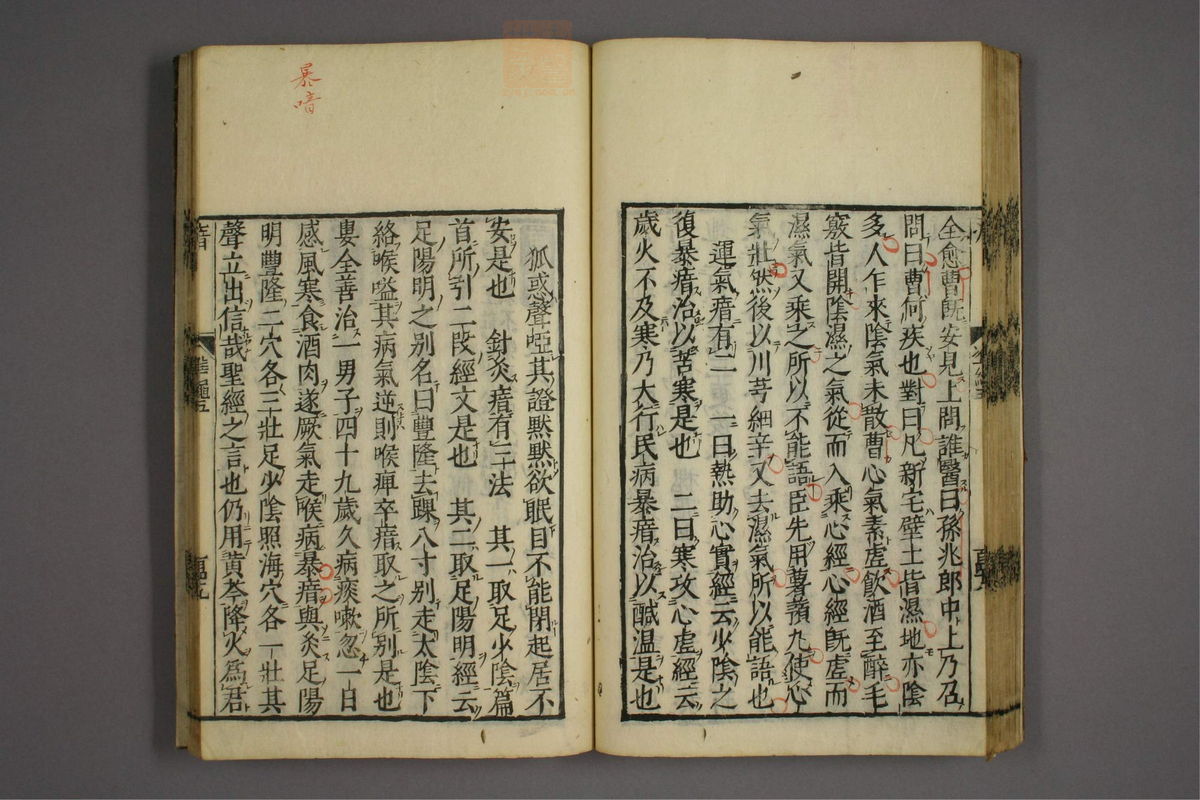 全愈曹旣安見上問誰醫曰孫兆郎中上乃召
問曰曹何疾也對曰凡新宅壁土皆濕地亦陰
多人乍來陰氣未散曹心氣素虛飲酒至醉毛
竅皆開陰濕之氣從而入乘心經心經旣虛而
濕氣又乘之所以不能語臣先用薯蕷丸使心
氣壯然後以川芎細辛又去濕氣所以能語也
運氣瘖有二　一曰熱助心實經云少陰之
復暴瘖治以苦寒是也　二曰寒攻心虛經云
歲火不及寒乃大行民病暴瘖治以鹹温是也
暴喑
狐惑聲啞其證默默欲眠目不能閉起居不
安是也　針灸瘖有三法　其一取足少陰篇
首所引二段經文是也　其二取足陽明經云
足陽明之别名曰豐隆去踝八寸别走太陰下
絡喉嗌其病氣逆則喉痺卒瘖取之所别是也
婁全善治一男子四十九歲久病痰嗽忽一日
感風寒食酒肉遂厥氣走喉病暴瘖與灸足陽
明豐隆二穴各三壯足少陰照海穴各一壯其
聲立出信哉聖經之言也仍用黄芩降火爲君
瘖
準繩五